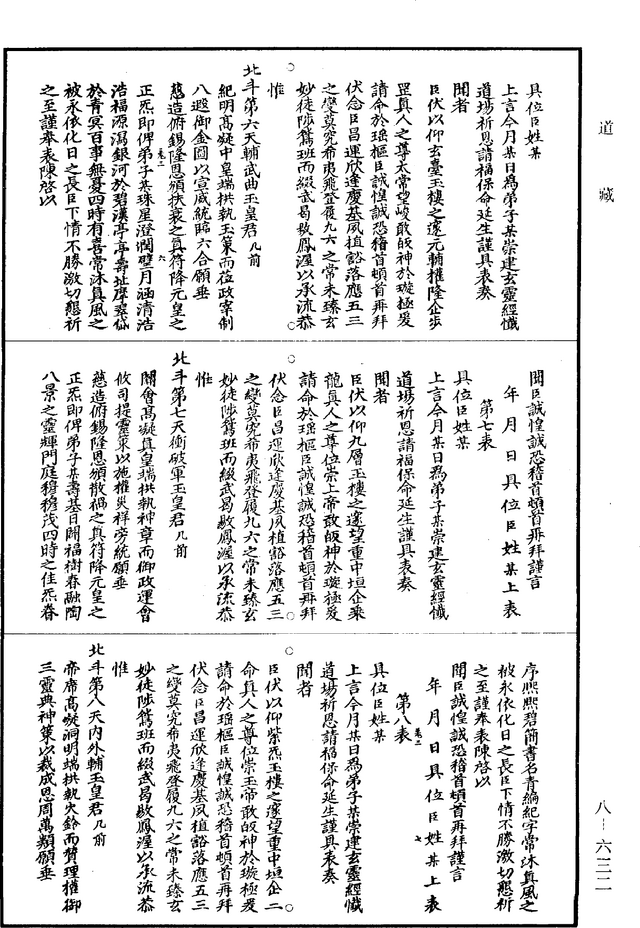 道藏
具位臣姓某
上言今月某日為弟子某崇建玄靈經懺
道場祈恩請福保命延生謹具表奏
聞者
臣伏以仰玄臺玉樓之邃元輔權隆企步
罡真人之尊太常望峻敢皈神於璇極爰
請命於瑶樞臣誠惶誠恐稽首頓首再拜
伏念臣昌運欣逢慶基夙植豁落應五三
之變莫究希夷飛登履九六之常未臻玄
妙徒陟鵷班而綴武曷敭鳳渥以承流恭
惟
北斗第六天輔武曲玉皇君几前
紀明高凝中皇端拱執玉策而莅政宰制
八遐御金圖以宣威統臨六合願垂
慈造俯錫隆恩頒扶衰之真符降元皇之
正炁即俾弟子某珠星澄潤璧月涵清浩
浩福源瀉銀河於碧漢亭亭壽址摩翠岱
於青冥百事無憂四時有喜常沐真風之
被永依化日之長臣下情不勝激切懇祈
之至謹奉表陳啓以
聞臣誠惶誠恐稽首頓首再拜謹言
年月日具位臣姓某上表
第七表
具位臣姓某
上言今月某日為弟子某崇建玄靈經懺
道場祈恩請福保命延生謹具表奏
聞者
臣伏以仰九層玉樓之邃望重中垣企乘
龍真人之尊位崇上帝敢皈神於璇極爰
請命於瑶樞臣誠惶誠恐稽首頓首再拜
伏念臣昌運欣逢慶基夙植豁落應五三
之變莫究希夷飛登履九六之常未臻玄
妙徒陟鵷班而綴武曷敭鳳渥以承流恭
惟
北斗第七天衝破軍玉皇君几前
關會高凝真皇端拱執神章而御政運會
攸司提靈策以施權災祥旁統願垂
慈造俯錫隆恩頒散禍之真符降元皇之
正炁即俾弟子某壽基日闢福樹春融陶
八景之靈輝門庭穆穆茂四時之佳炁眷
序熈熈碧簡書名青編紀字常沐真風之
被永依化日之長臣下情不勝激切懇祈
之至謹奉表陳啓以
聞臣誠惶誠恐稽首頓首再拜謹言
年月日具位臣姓某上表
第八表
具位臣姓某
上言今月某日為弟子某崇建玄靈經懺
道場祈恩請福保命延生謹具表奏
聞者
臣伏以仰紫炁玉樓之邃望重中垣企二
命真人之尊位崇玉帝敢皈神於璇極爰
請命於瑶樞臣誠惶誠恐稽首頓首再拜
伏念臣昌運欣逢慶基夙植豁落應五三
之變莫究希夷飛登履九六之常未臻玄
妙徒陟鵷班而綴武曷敭鳳渥以承流恭
惟
北斗第八天内外輔玉皇君几前
帝席高凝洞明端拱執火鈴而贊理權御
三靈典神策以裁成恩周萬類願垂
八—六三二